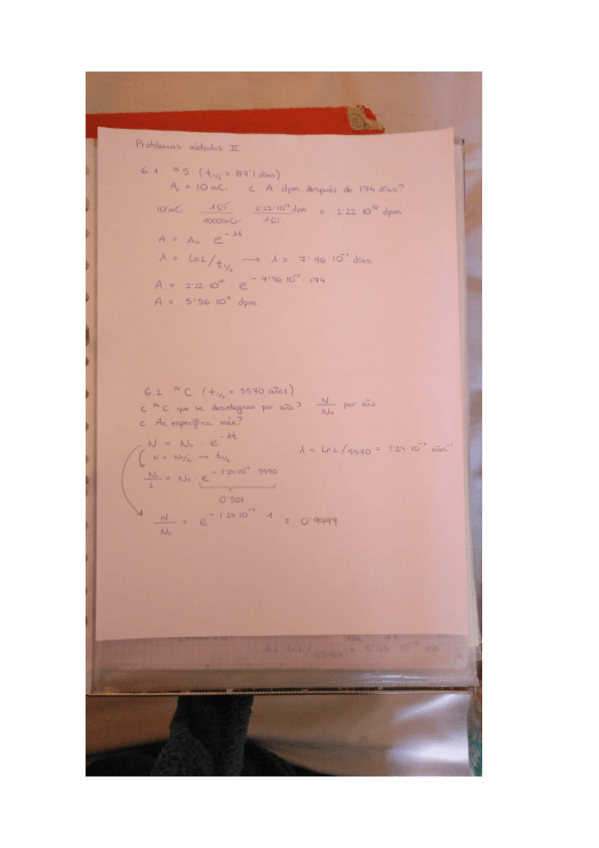 Problemas métodos II
6.1 ³⁵S (t₁/₂ = 87'1 días)
A₀ = 10 mCi ¿ A dpm después de 174 días?
10 mCi · 1 Ci / 1000 mCi · 2'22·10¹² dpm / 1 Ci = 2'22·10¹⁰ dpm
A = A₀ · e^-λt
λ = Ln2/t₁/₂ → λ = 7'96·10⁻³ días
A = 2'22·10¹⁰ · e^-7'96·10⁻³·174
A = 5'56·10⁹ dpm
6.2 ¹⁴C (t₁/₂ = 5570 años)
¿ ¹⁴C que se desintegra por año? N/N₀ por año
¿ Ac específica máx?
N = N₀ · e^-λt λ = Ln2/5570 = 1'24·10⁻⁴ años⁻¹
N = N₀/2 → t₁/₂
N₀/2 = N₀ · e^-1'24·10⁻⁴·5570
0'501
N/N₀ = e^-1'24·10⁻⁴·1 = 0'9999